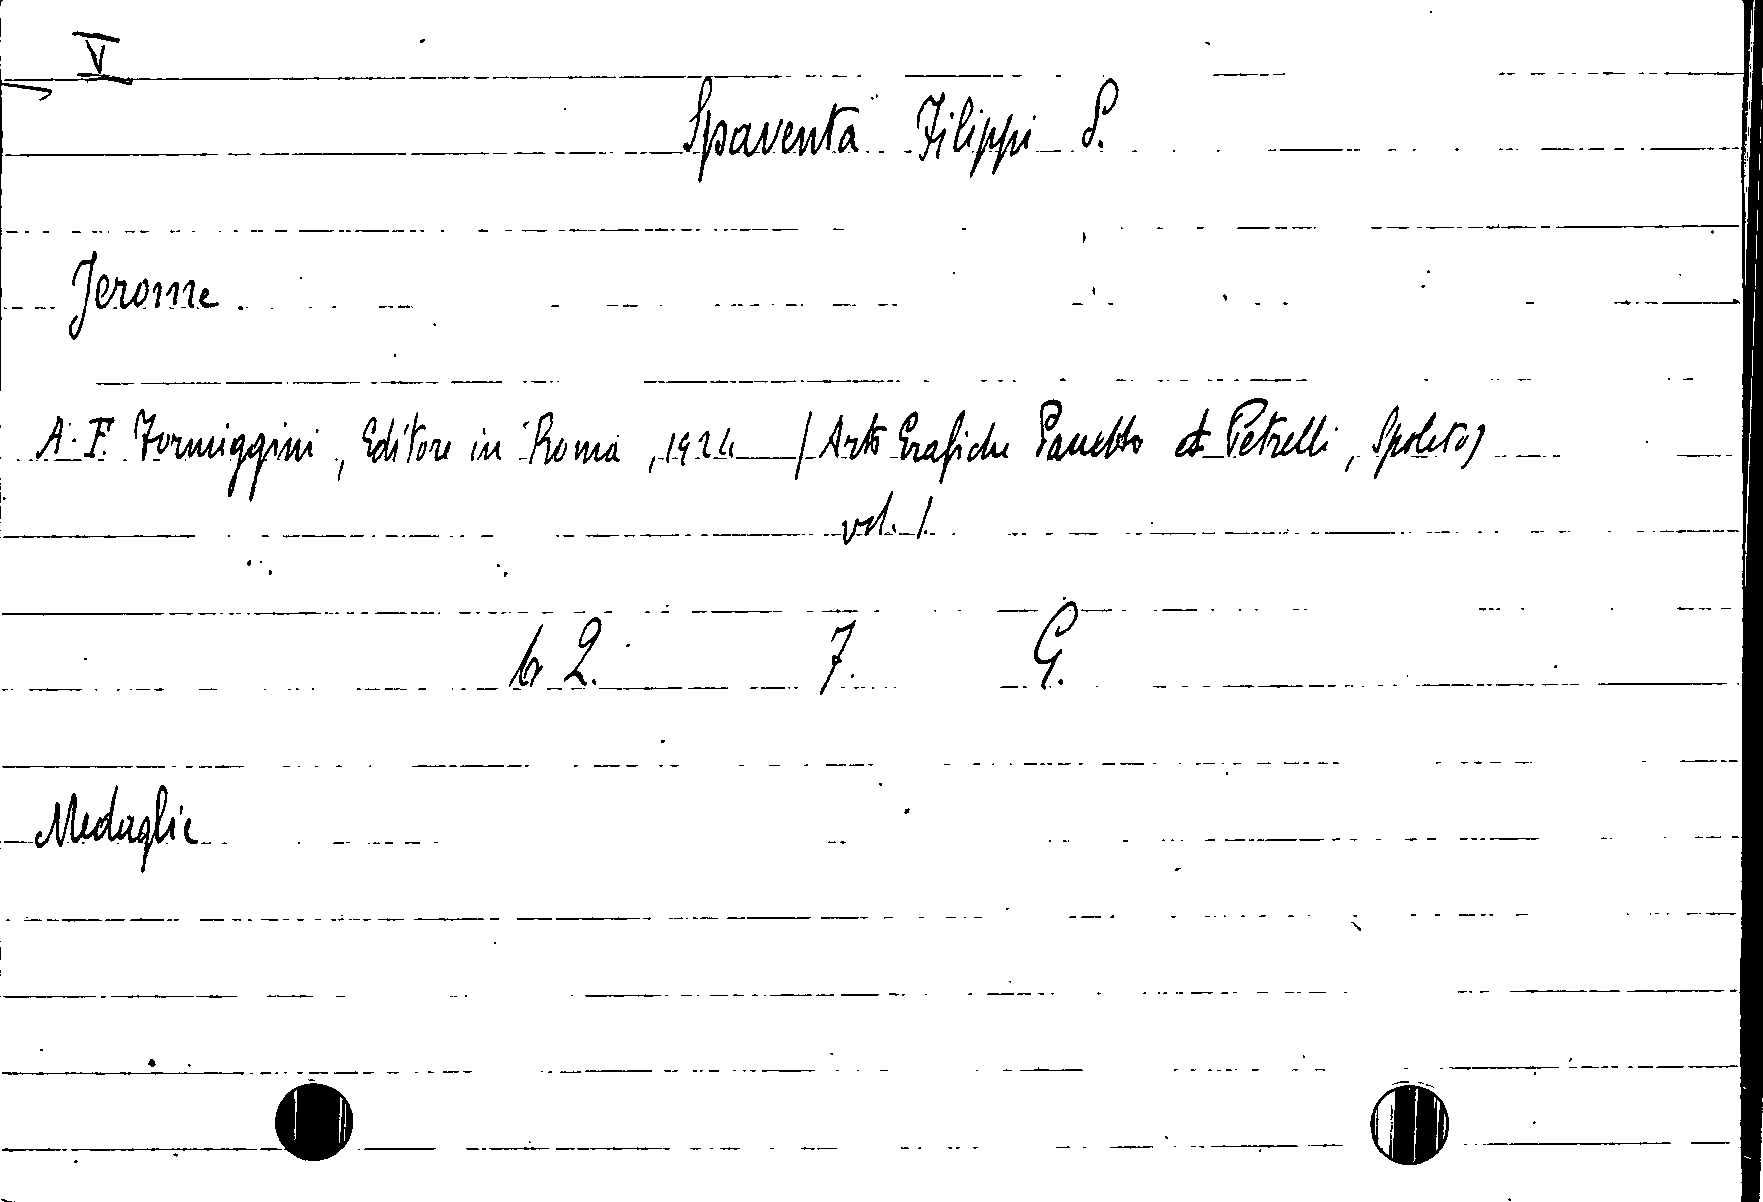 V
Spaventa Filippi S.
Jerome.
A. F. Formiggini, Editore in Roma, 1924 (Arti Grafiche Panetto et Petrelli, Spoleto)
vol. 1.
62. 7. G.
Medaglie